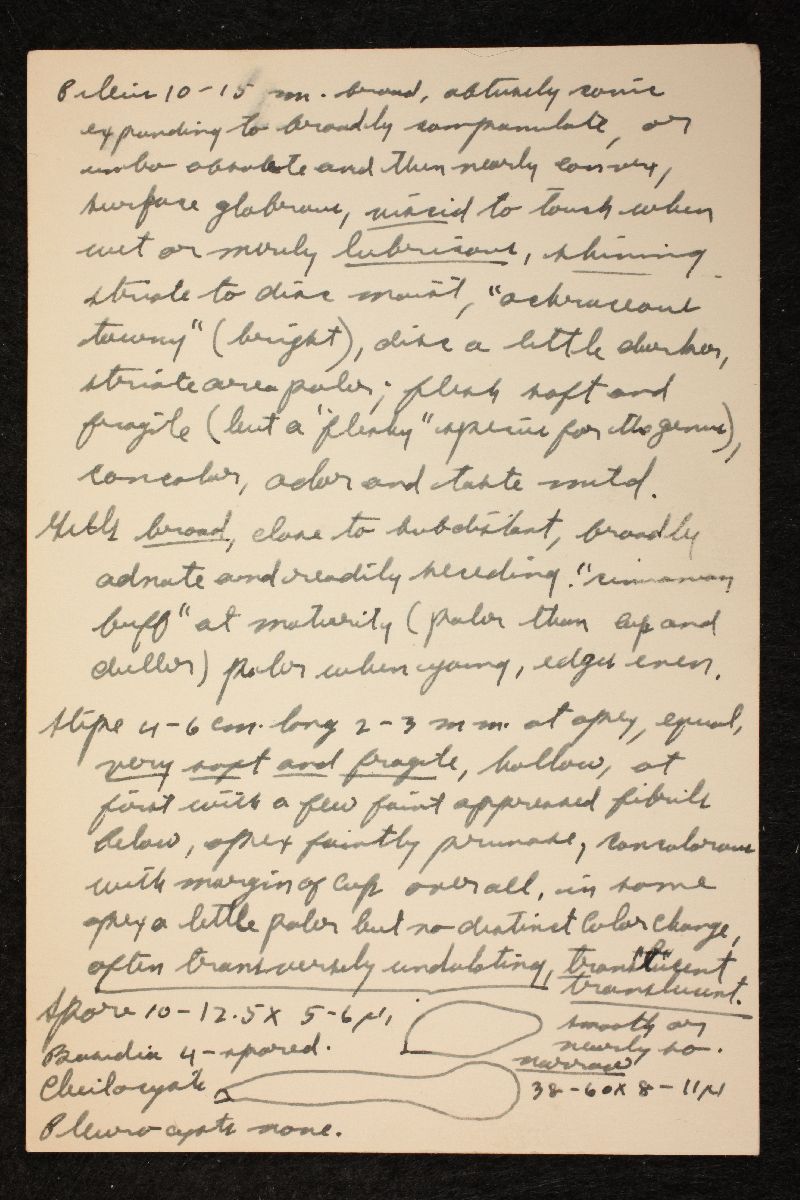 Pileus 10-15 mm. broad, obtusely conic
expanding to broadly campanulate, or
umbo obsolete and then nearly convex,
surface glabrous, viscid to touch when
wet or merely lubricous, shining
striate to disc moist, "ochraceous
tawny" (bright), disc a little darker,
striate area paler; flesh soft and
fragile (but a "fleshy" species for the genus),
concolor, odor and taste mild.
Gills broad, close to subdistant, broadly
adnate and readily seceding. "cinnamon
buff" at maturity (paler than cap and
duller) paler when young, edges even.
Stipe 4-6 cm. long 2-3 mm. at apex, equal,
very soft and fragile, hollow, at
first with a few faint appressed fibrils
below, apex faintly pruinose, concolorous
with margin of cap over all, in some
apex a little paler but no distinct color change,
often transversely undulating, translucent
translucent.
Spore 10-12.5 x 5-6 µ,
smooth or
nearly so.
Basidia 4-spored.
narrow
Cheilocysts
38-60 x 8-11 µ
Pleurocysts none.